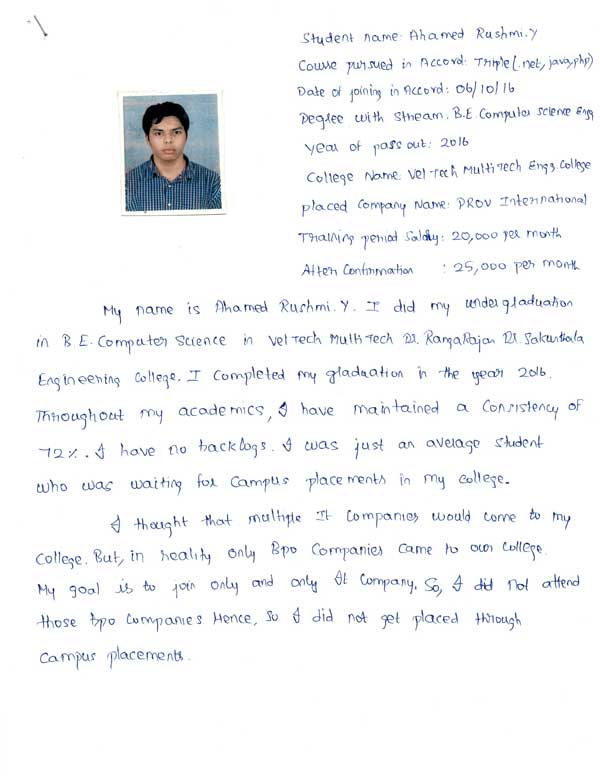 Student name: Ahamed Rushmi.Y
Course pursued in Accord: Triple(.net, java, php)
Date of joining in Accord: 06/10/16
Degree with Stream: B.E. Computer Science Engg
Year of pass out: 2016
College Name: Vel Tech Multi Tech Engg. College
placed Company Name: PROV International
Training period Salary: 20,000 per month
After Confirmation : 25,000 per month
My name is Ahamed Rushmi.Y. I did my undergraduation
in B.E. Computer Science in Vel Tech Multi Tech Dr. RangaRajan Dr. Sakunthala
Engineering College. I completed my graduation in the year 2016.
Throughout my academics, I have maintained a consistency of
72%. I have no backlogs. I was just an average student
who was waiting for campus placements in my college.
I thought that multiple It Companies would come to my
College. But, in reality only Bpo Companies came to our College.
My goal is to join only and only It Company. So, I did not attend
those bpo companies Hence, so I did not get placed through
Campus placements.